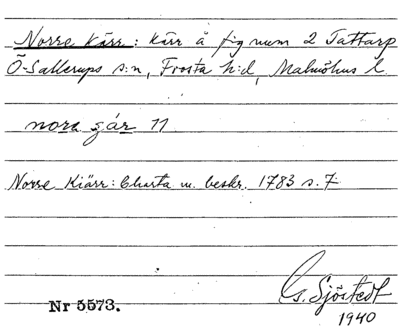 Norre Kärr: Kärr å fignum 2 Tattarp
Ö-Sallerups s:n, Frosta h:d, Malmöhus l.
nora ʒár 11
Norre Kiärr: Charta m. beskr. 1783 s. 7
G. Sjöstedt
1940
Nr 5573.